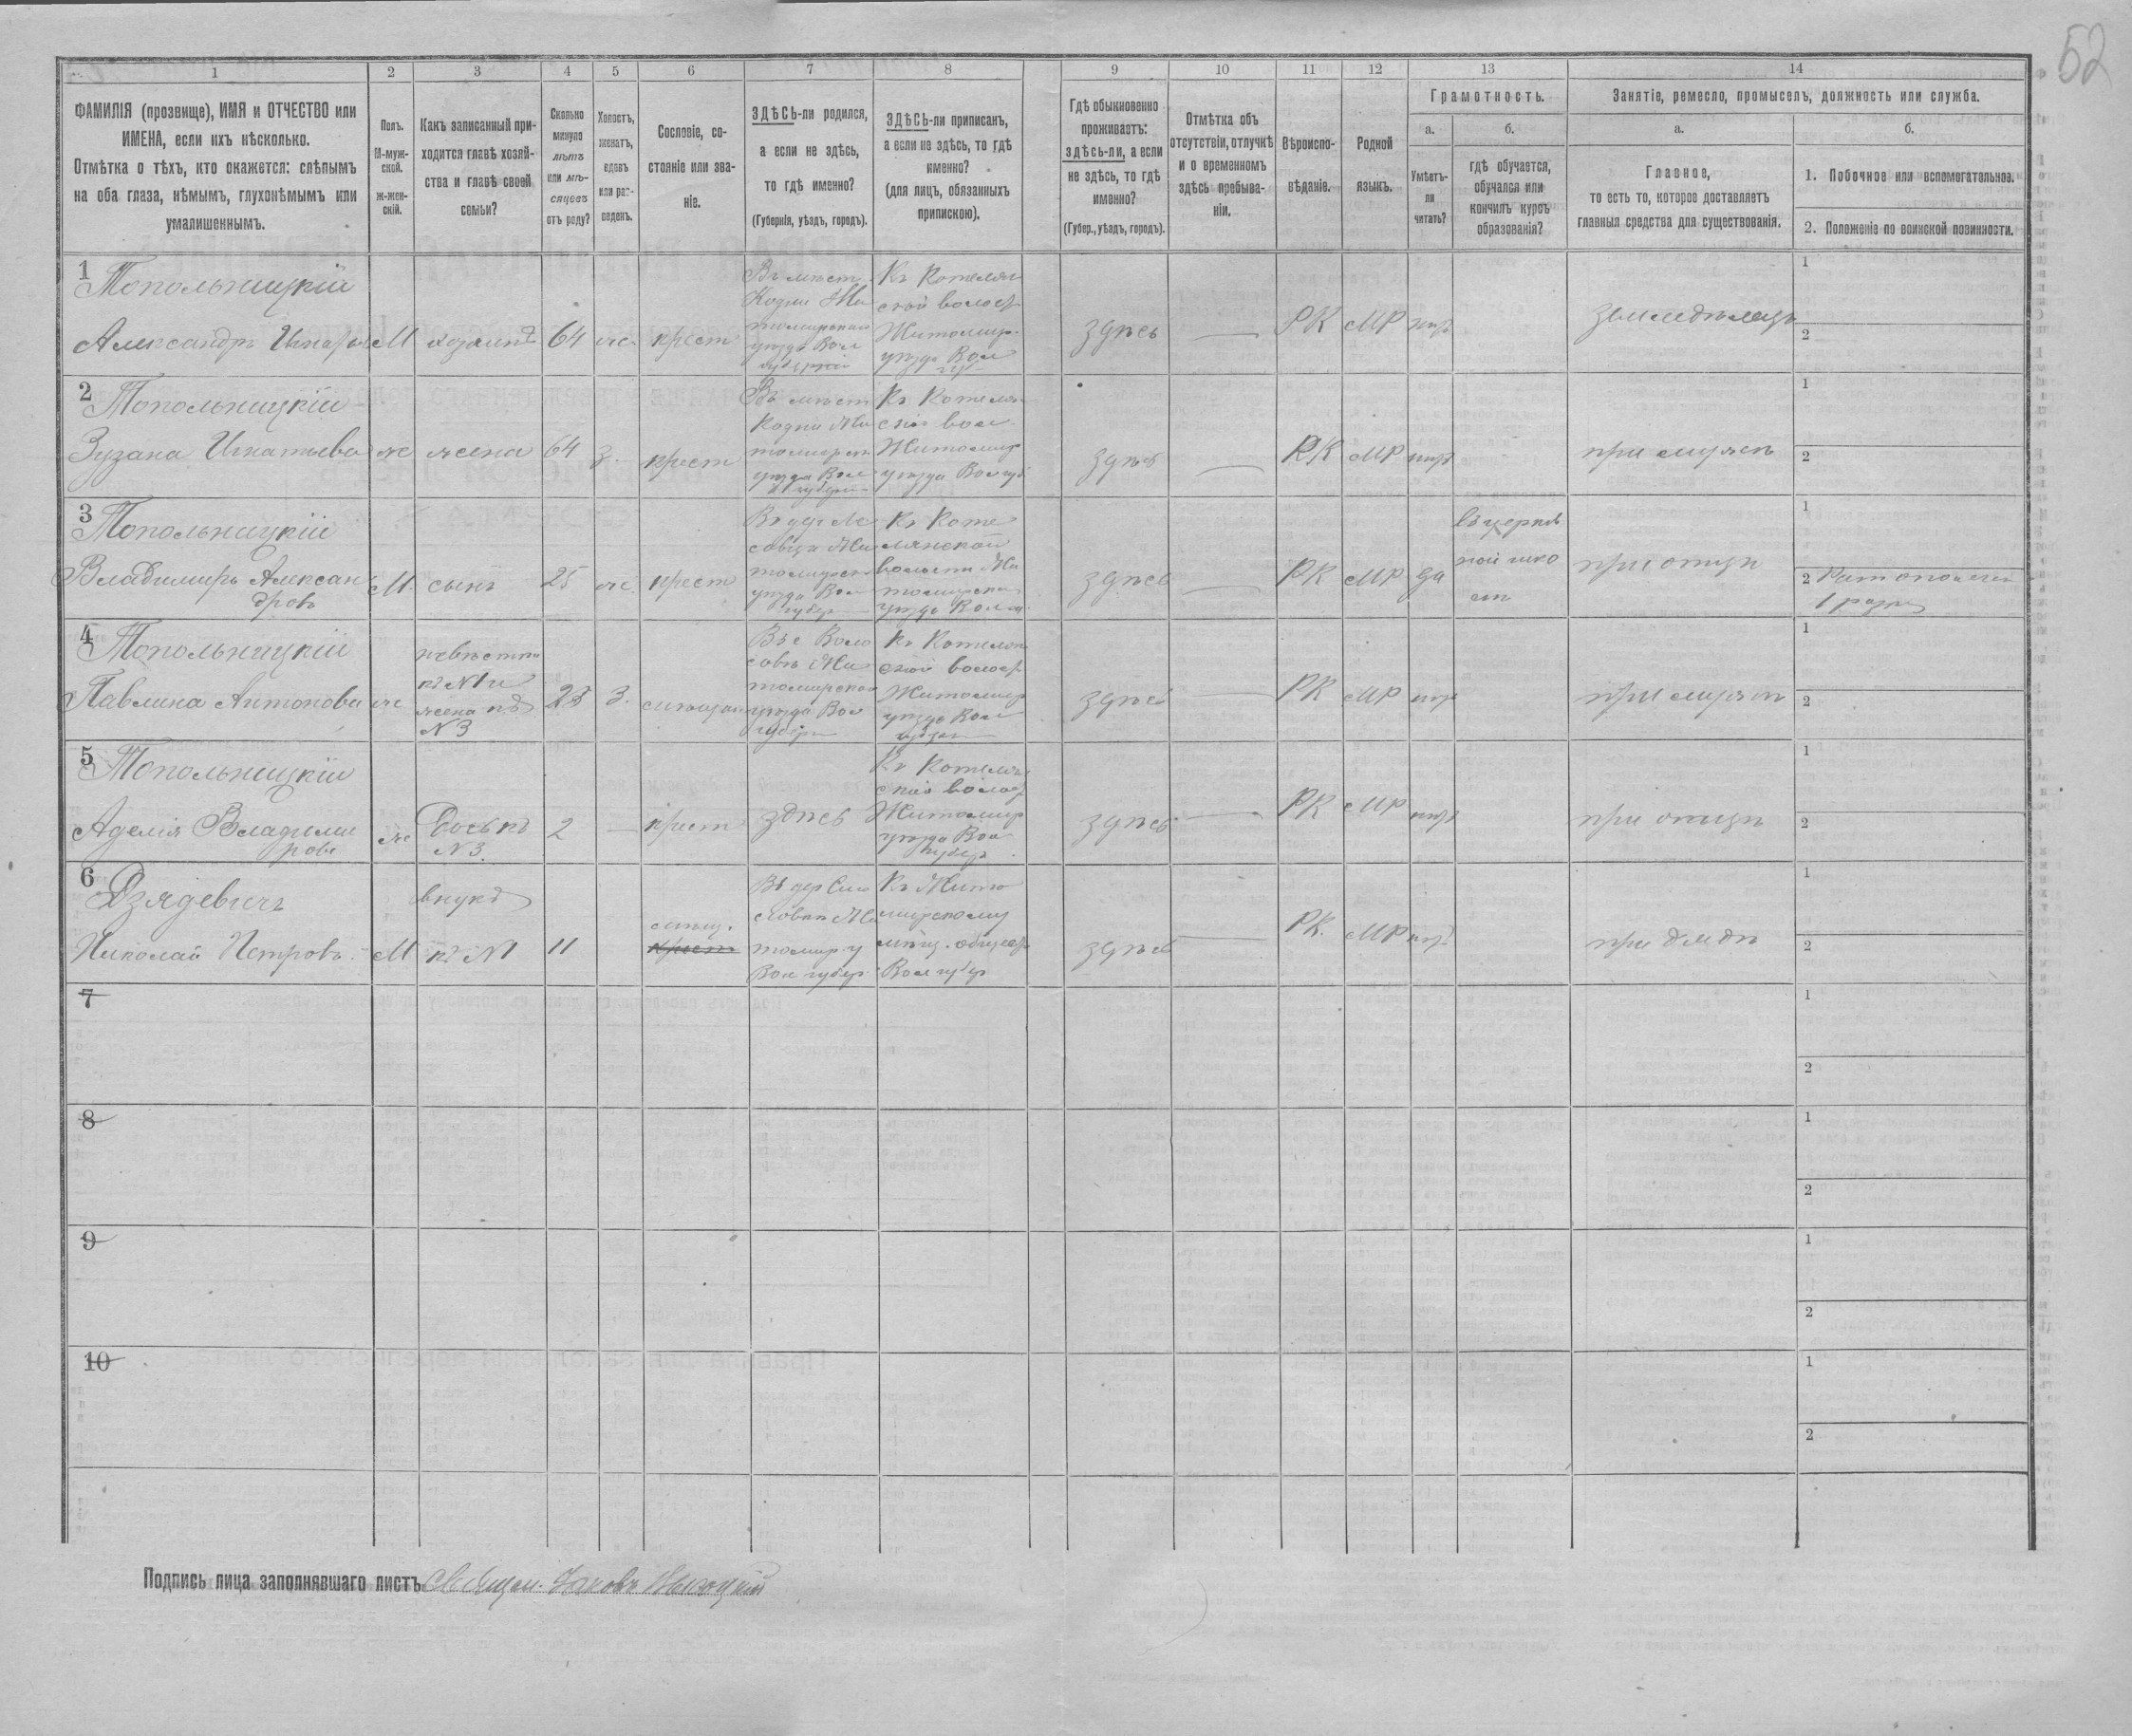 52
1 2 3 4 5 6 7 8 9 10 11 12 13 14
ФАМИЛІЯ (прозвище), ИМЯ и ОТЧЕСТВО или
ИМЕНА, если ихъ нѣсколько.
Отмѣтка о тѣхъ, кто окажется: слѣпымъ
на оба глаза, нѣмымъ, глухонѣмымъ или
умалишеннымъ.
Полъ.
М-муж-
ской.
ж-жен-
скій.
Какъ записанный при-
ходится главѣ хозяй-
ства и главѣ своей
семьи?
Сколько
минуло
лѣтъ
или мѣ-
сяцевъ
отъ роду?
Холостъ,
женатъ,
вдовъ
или раз-
веденъ.
Сословіе, со-
стояніе или зва-
ніе.
ЗДѢСЬ-ли родился,
а если не здѣсь,
то гдѣ именно?
(Губернія, уѣздъ, городъ).
ЗДѢСЬ-ли приписанъ,
а если не здѣсь, то гдѣ
именно?
(для лицъ, обязанныхъ
припискою).
Гдѣ обыкновенно
проживаетъ:
здѣсь-ли, а если
не здѣсь, то гдѣ
именно?
(Губер., уѣздъ, городъ).
Отмѣтка объ
отсутствіи, отлучкѣ
и о временномъ
здѣсь пребыва-
ніи.
Вѣроиспо-
вѣданіе.
Родной
языкъ.
Грамотность.
а.
Умѣетъ-
ли
читать?
б.
гдѣ обучается,
обучался или
кончилъ курсъ
образованія?
Занятіе, ремесло, промыселъ, должность или служба.
а.
Главное,
то есть то, которое доставляетъ
главныя средства для существованія.
б.
1. Побочное или вспомогательное.
2. Положеніе по воинской повинности.
1
Топольницкій
Александръ
М
хозяинъ
64
же
крест
Въ мѣст
Кодни Жи
томирскаго
уѣзда Вол
губерній
Къ Котелян
ской волост
Житомир.
уѣзда Вол
губ
здѣсь
—
РК
МР
нѣт
земледѣлецъ
1
2
2
Топольницкій
Зузана Игнатьева
же
жена
64
з.
крест
Въ мѣст
Кодни Жи
томирск
уѣзда Вол
губерн
Къ Котелян
ской вол
Житомир
уѣзда Вол губ
здѣсь
—
РК
МР
нѣт
при мужѣ
1
2
3
Топольницкій
Владимиръ Алексан
дровъ
М.
сынъ
25
же.
крест
Въ дер
Жи
томирск
уѣзда Вол
губер
Къ Коте
лянской
волости Жи
томирскаго
уѣзда Вол
здѣсь
—
РК
МР
да
въ церков
ной шко
лѣ
при отцѣ
1
2 Ратополчен
1 разр
4
Топольницкій
Павлина Антонова
же
невѣстка
къ N1 и
жена къ
N 3
з.
Въ с Воло
совѣ Жи
томирскаго
уѣзда Вол
губерн
Къ Котелян
ской волост
Житомир
уѣзда Вол
губерн
здѣсь
—
РК
МР
нѣт
при мужѣ
1
2
5
Топольницкій
Аделія Владими
рова
же
дочь къ
N 3.
2
—
крест
здѣсь
Къ Котелян
ской волост
Житомир
уѣзда Вол
губер
здѣсь
—
РК
МР
нѣт
при отцѣ
1
2
6
Дзядевичъ
Николай Петровъ.
М
внукъ
къ N1
11
мѣщ.
крест
Въ дер
Жи
томир. у
Вол губер
Къ Жито
мирскому
мѣщ. общест
Вол губер
здѣсь
—
РК.
МР
нѣт
при дѣдѣ
1
2
7
1
2
8
1
2
9
1
2
10
1
2
Подпись лица заполнявшаго листъ